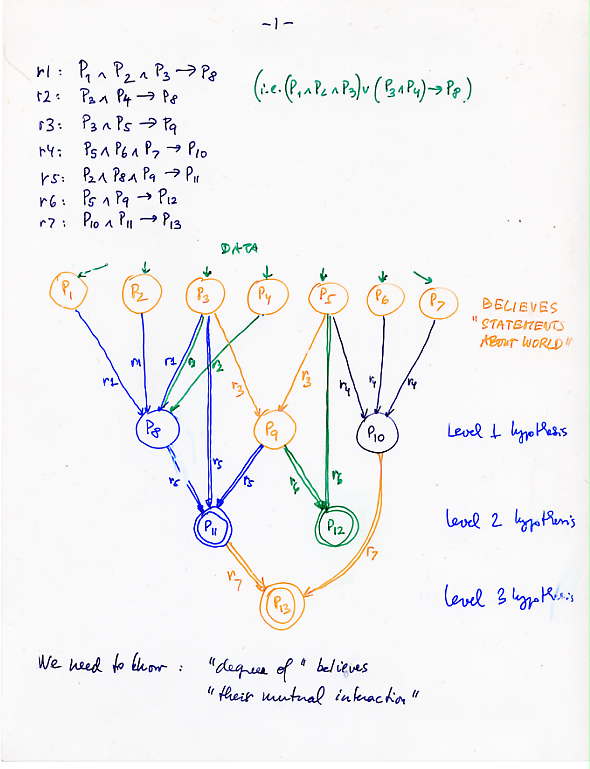 -1-
r1: P1 ∧ P2 ∧ P3 → P8
(i.e. (P1 ∧ P2 ∧ P3) ∨ (P3 ∧ P4) → P8)
r2: P3 ∧ P4 → P8
r3: P3 ∧ P5 → P9
r4: P5 ∧ P6 ∧ P7 → P10
r5: P2 ∧ P8 ∧ P9 → P11
r6: P5 ∧ P9 → P12
r7: P10 ∧ P11 → P13
DATA
P1 P2 P3 P4 P5 P6 P7
BELIEVES
"STATEMENTS
ABOUT WORLD"
r1 r1 r1 r2 r2 r3 r3 r4 r4 r4
P8 P9 P10
Level 1 hypothesis
r5 r5 r5 r6 r6
P11 P12
Level 2 hypothesis
r7 r7
P13
Level 3 hypothesis
We need to know : "degree of" believes
"their mutual interaction"